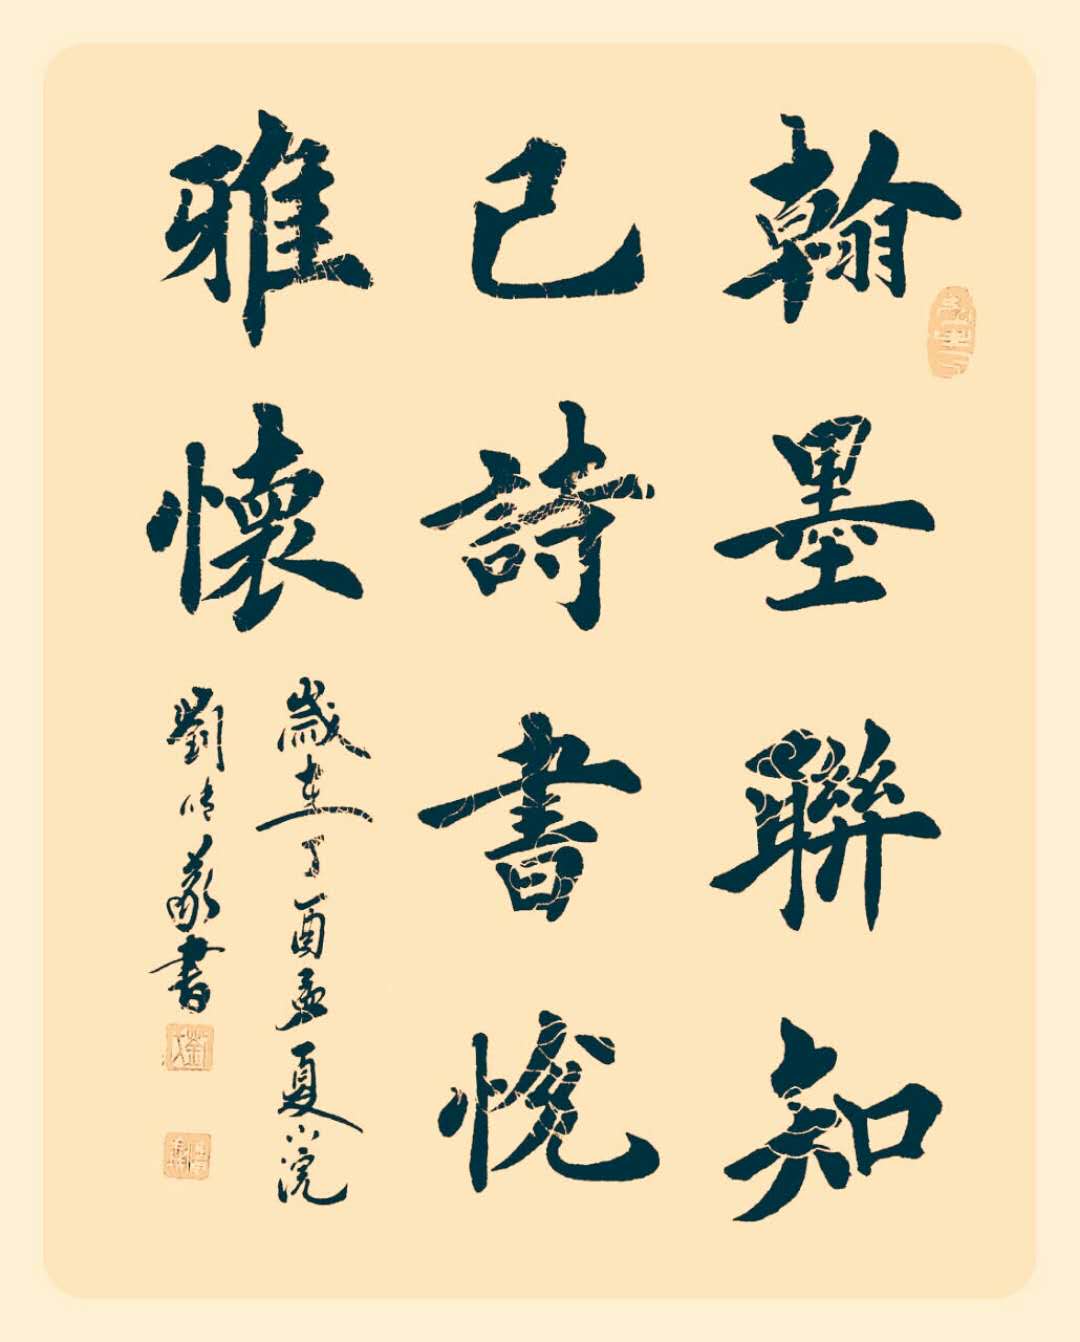 翰墨聯知
己詩書悅
雅懷
歲在丁酉孟夏小浣
劉
書